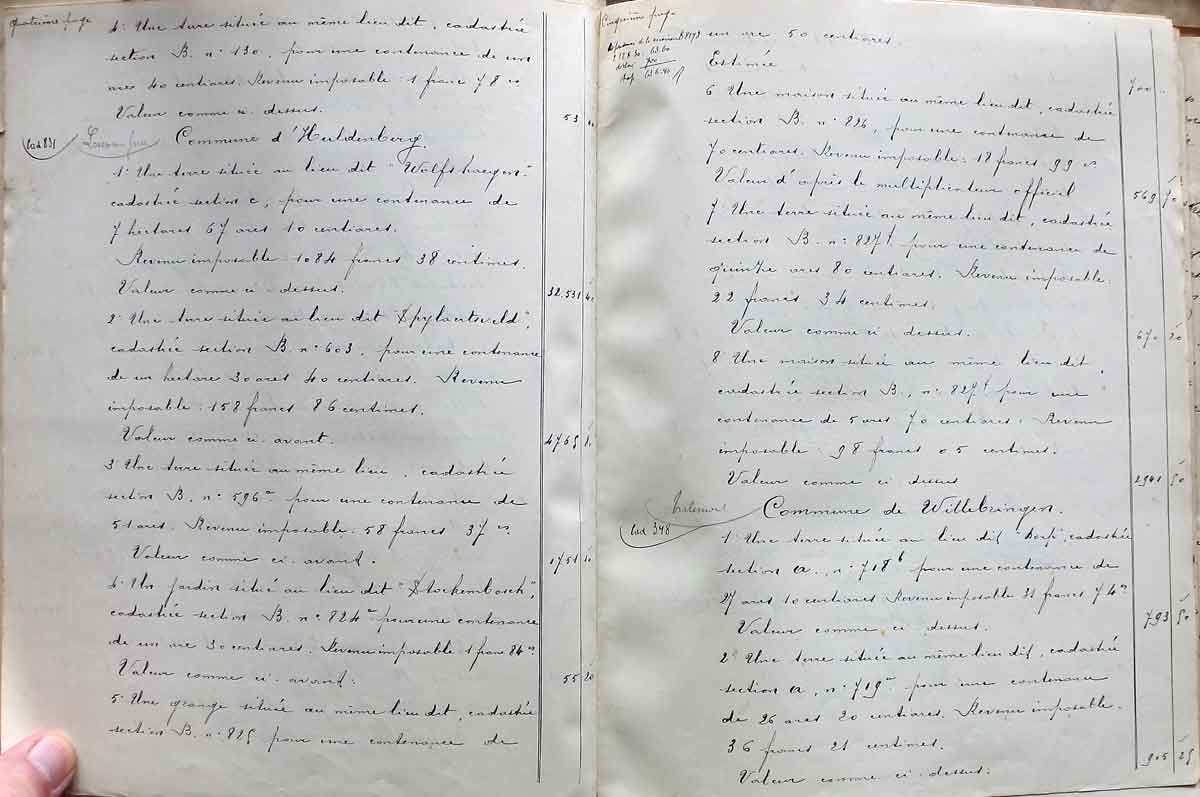 quatrième page
4° Une terre située au même lieu dit, cadastrée
section B. n° 130, pour une contenance de un
are 40 centiares. Revenu imposable: 1 franc 78 cs
Valeur comme ci-dessus.
53
Cad 831
Commune d'Huldenberg.
1° Une terre située au lieu dit "Wolfshaegen",
cadastrée section C, pour une contenance de
7 hectares 67 ares 10 centiares.
Revenu imposable 1084 francs 38 centimes.
Valeur comme ci-dessus.
32.531 40
2° Une terre située au lieu dit "Spylaertsveld",
cadastrée section B. n° 603, pour une contenance
de un hectare 30 ares 40 centiares. Revenu
imposable: 158 francs 86 centimes.
Valeur comme ci-avant.
4765 8
3° Une terre située au même lieu, cadastrée
section B. n° 596a pour une contenance de
51 ares. Revenu imposable: 58 francs 37 cs
Valeur comme ci-avant.
1751 10
4° Un jardin situé au lieu dit "Stockembosch",
cadastrée section B. n° 824a pour une contenance
de un are 30 centiares. Revenu imposable 1 franc 84 cs
Valeur comme ci-avant.
55 20
5° Une grange située au même lieu dit, cadastrée
section B. n° 825 pour une contenance de
Cinquième page
un are 50 centiares.
Estimée
700
6° Une maison située au même lieu dit, cadastrée
section B. n° 826, pour une contenance de
70 centiares. Revenu imposable: 18 francs 99 cs
Valeur d'après le multiplicateur officiel
569 70
7° Une terre située au même lieu dit, cadastrée
section B. n° 827f pour une contenance de
quinze ares 80 centiares. Revenu imposable:
22 francs 34 centimes.
Valeur comme ci-dessus.
670 20
8° Une maison située au même lieu dit,
cadastrée section B., n° 827f pour une
contenance de 5 ares 70 centiares. Revenu
imposable: 98 francs 05 centimes.
Valeur comme ci-dessus
2941 50
Cad 348
Commune de Willebringen.
1° Une terre située au lieu dit "Dorp", cadastrée
section A., n° 718b pour une contenance de
27 ares 10 centiares Revenu imposable 31 francs 74 cs
Valeur comme ci-dessus.
793 50
2° Une terre située au même lieu dit, cadastrée
section A, n° 719a pour une contenance
de 26 ares 20 centiares. Revenu imposable.
36 francs 21 centimes.
Valeur comme ci-dessus:
905 25